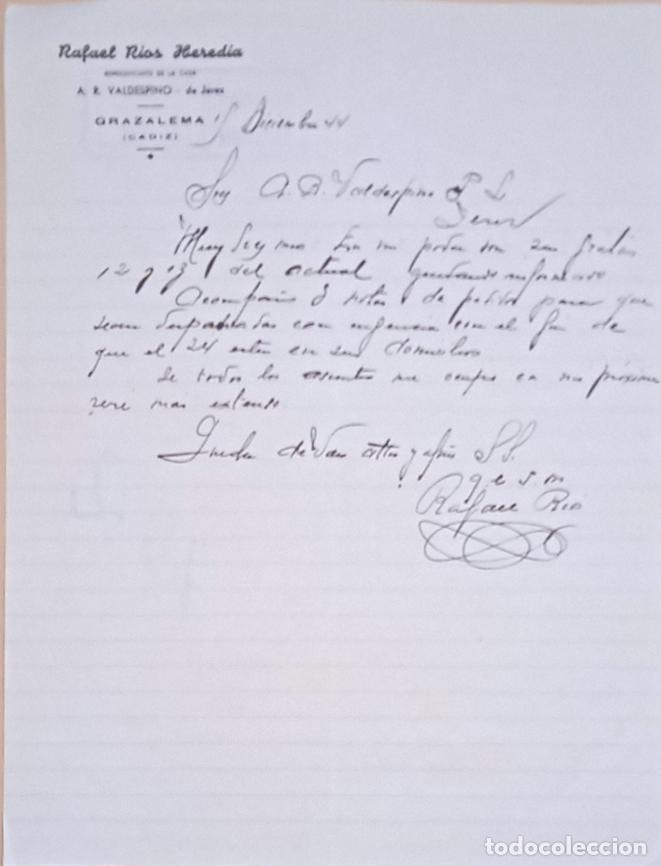 Rafael Rios Heredia
REPRESENTANTE DE LA CASA
A. R. VALDESPINO - de Jerez
GRAZALEMA
(CADIZ)
15 Diciembre 44
Sres A. R. Valdespino S. L
Jerez
Muy Sres mios En mi poder son sus gratas
12 y 13 del actual quedando informado
Acompaño notas de pedidos para que
sean despachadas con urgencia con el fin de
que el 24 esten en sus domicilios
De todos los asuntos me ocupo en mi proxima
sere mas extenso.
Queda de Vds attos y afmo S.S.
q e s m
Rafael Rios
todocoleccion